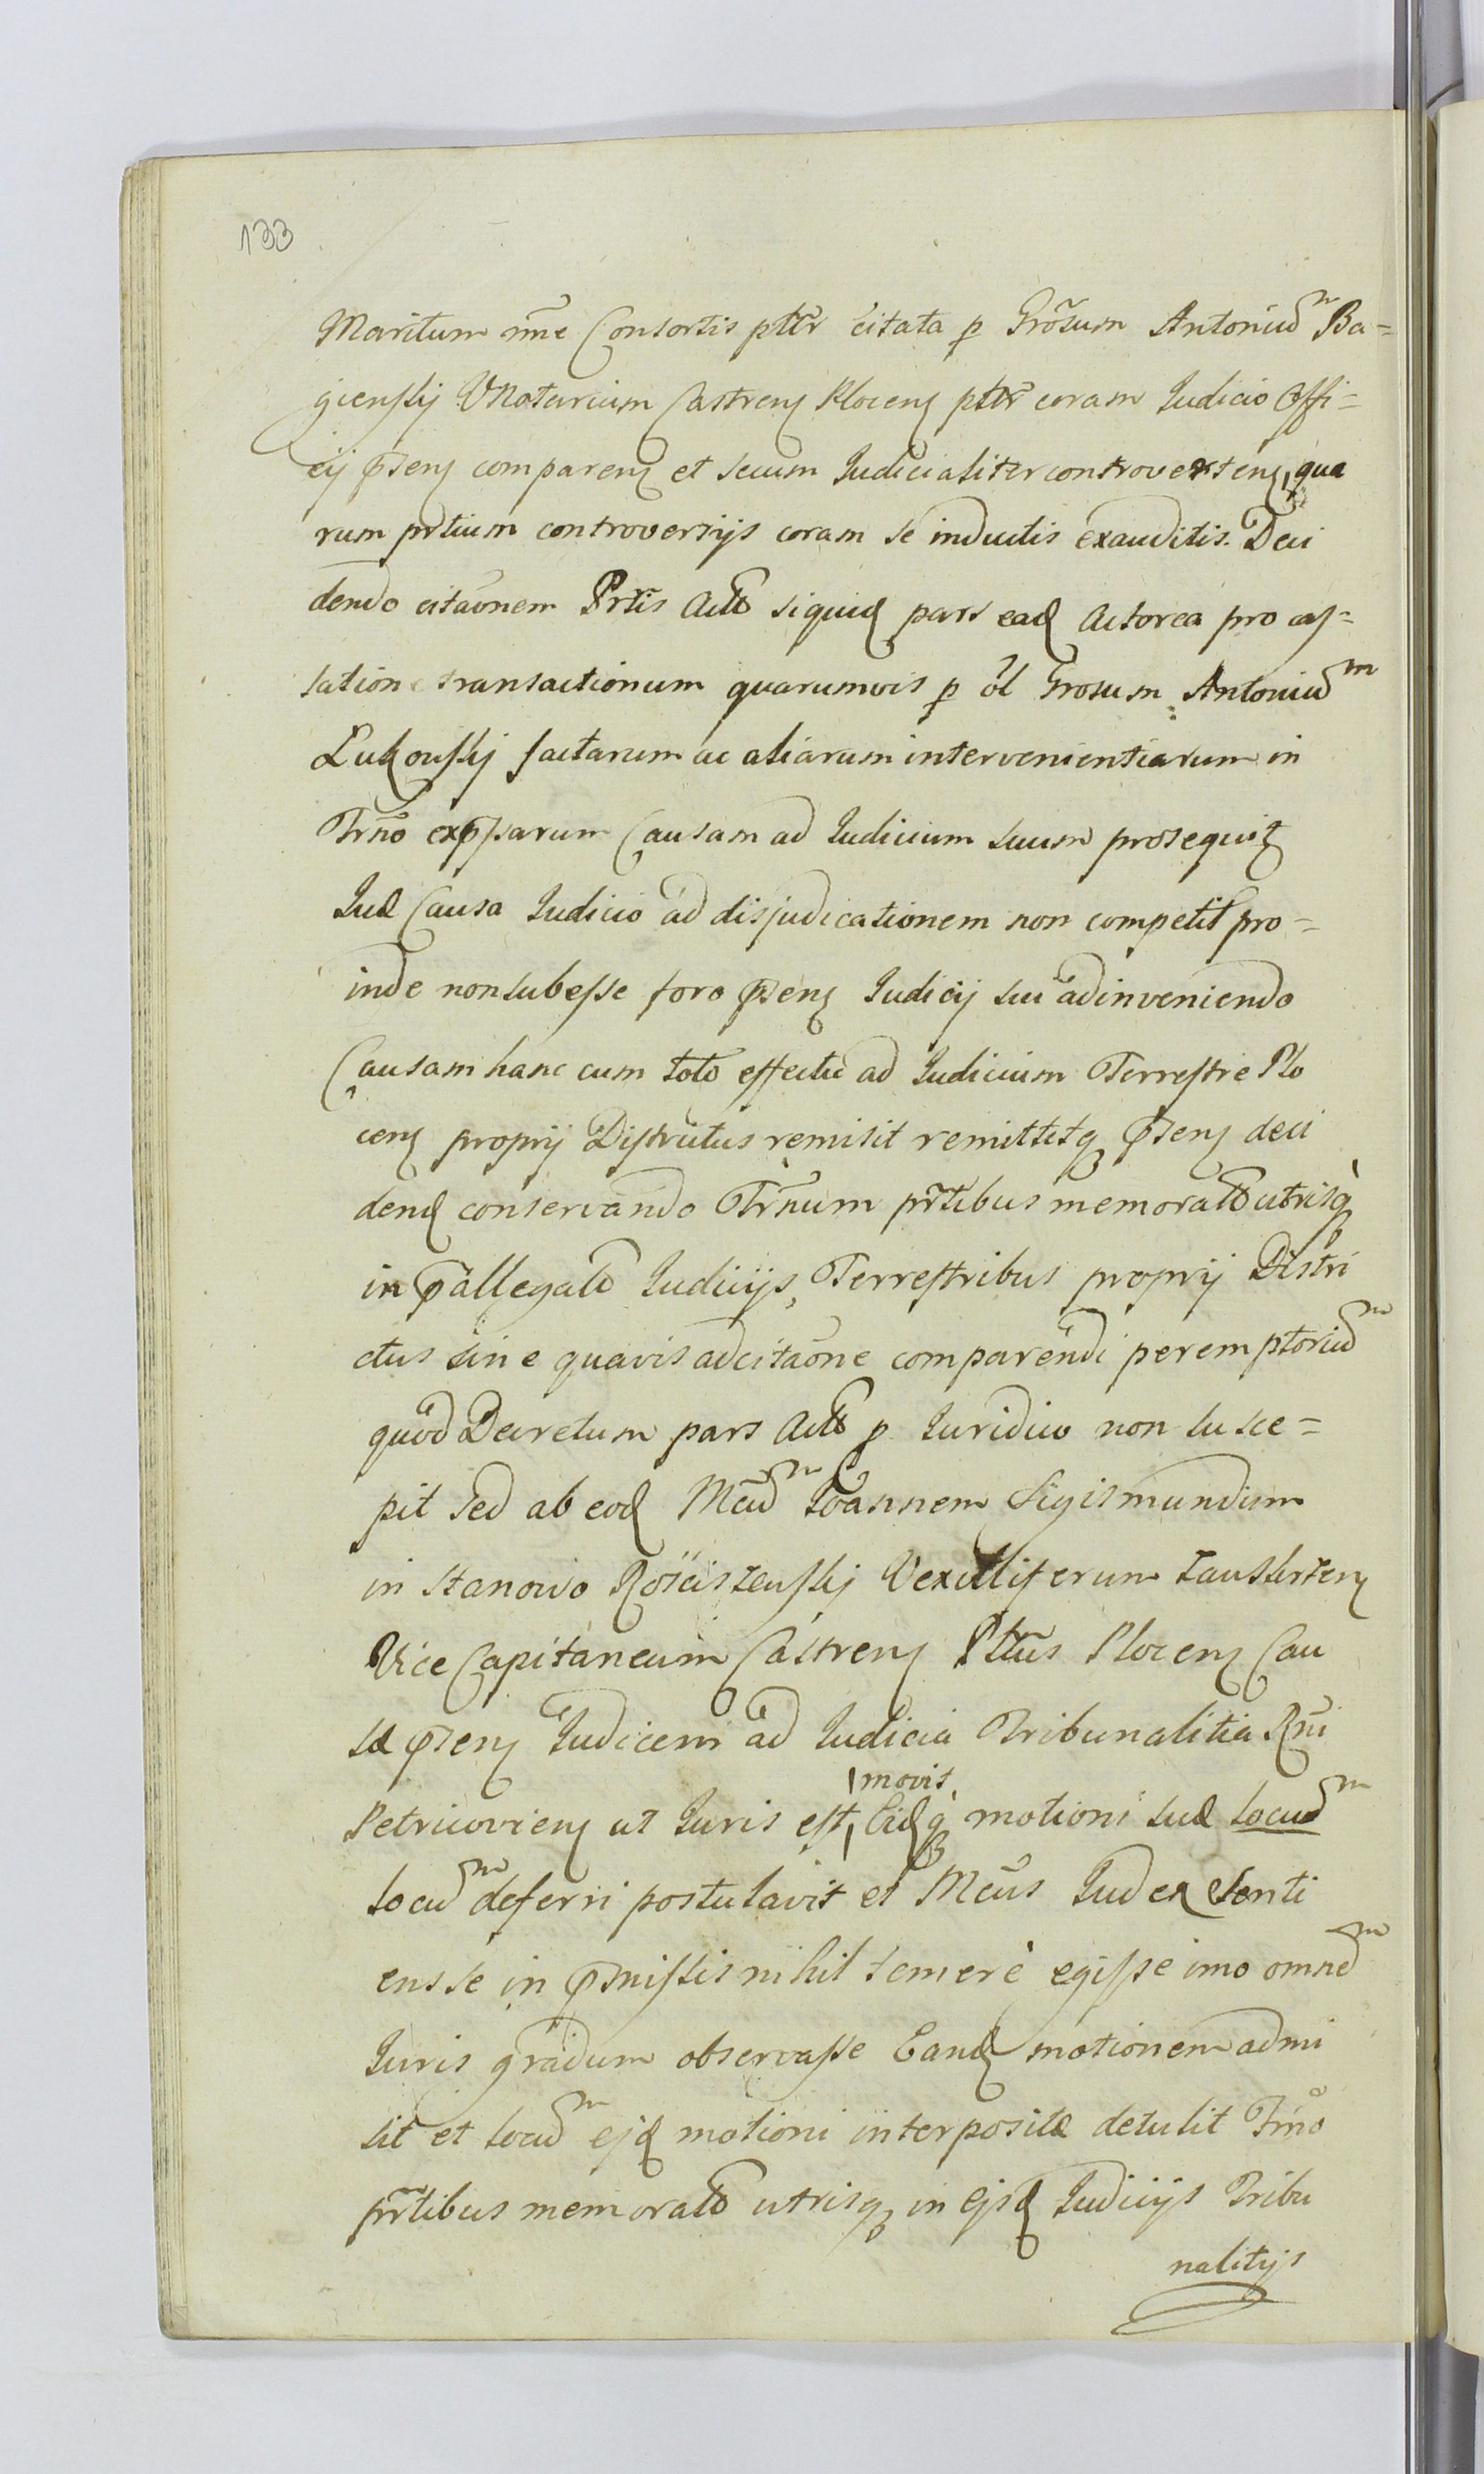 133
Maritum mne Consortis pttr citata p Grosum Antoniu͠m Ba=
gienskij VNotarium Castren Plocen pttr coram Judicio Offi=
cij p̄sen comparen et secum Judicialiter controverten, qua
rum prtium controversijs coram se inductis exauditis. Deci
dendo citaõnem Prtis Acto siquid pars ead Actorea pro cas=
satione transactionum quarumvis p ol Grosum Antoniu͠m
Lukouskij factarum ac aliarum intervenientiarum in
Trño exp̄ssarum Causam ad Judicium suum prosequit
Quæ Causa Judicio ad disjudicationem non competit pro=
inde non subesse foro p̄sen Judicij sui adinveniendo
Causam hanc cum toto effectu ad Judicium Terrestre Plo
cen proprij Districtus remisit remittitq p̄sen deci
dend conservando Trñum pr̃tibus memorato utrisq
in p̄allegato Judicijs, Terrestribus proprij Distri
ctus sine quavis adcitaõne comparendi peremptoriu͠m
quod Decretum pars Acto p Juridico non susce=
pit sed ab eod Mcu͠m Joannem Sigismundum
in Stanowo Rościszeuskij Vexilliferum
Vice Capitaneum Castren Pttus Plocen Cau
sæ p̄sen Judicem ad Judicia Tribunalitia Rñi
movit
Petricovien ut Juris est, Eidq motioni suæ locu͠m
locu͠m deferri postulavit et Mcũs Judex senti
ens se in p̄missis nihil temerè egisse imo omne͠m
Juris gradum observasse Eand motionem admi
sit et locu͠m ejd motioni interpositæ detulit Trño
pr̃tibus memorato utrisq in ejsd Judicijs Tribu
nalitijs